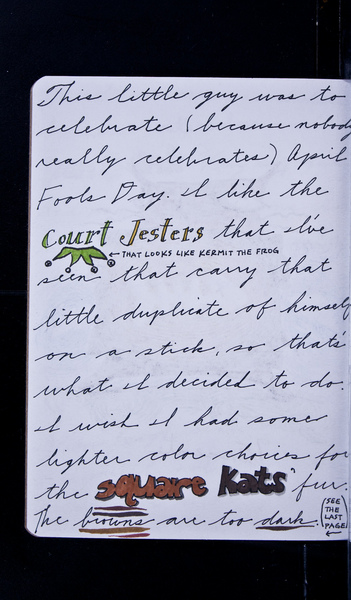 This little guy was to
celebrate (because nobody
really celebrates) April
Fools Day. I like the
Court Jesters that I've
← THAT LOOKS LIKE KERMIT THE FROG
seen that carry that
little duplicate of himself
on a stick, so that's
what I decided to do.
I wish I had some
lighter color choices for
the square Kats' fur.
The browns are too dark.
(SEE
THE
LAST
PAGE)
←